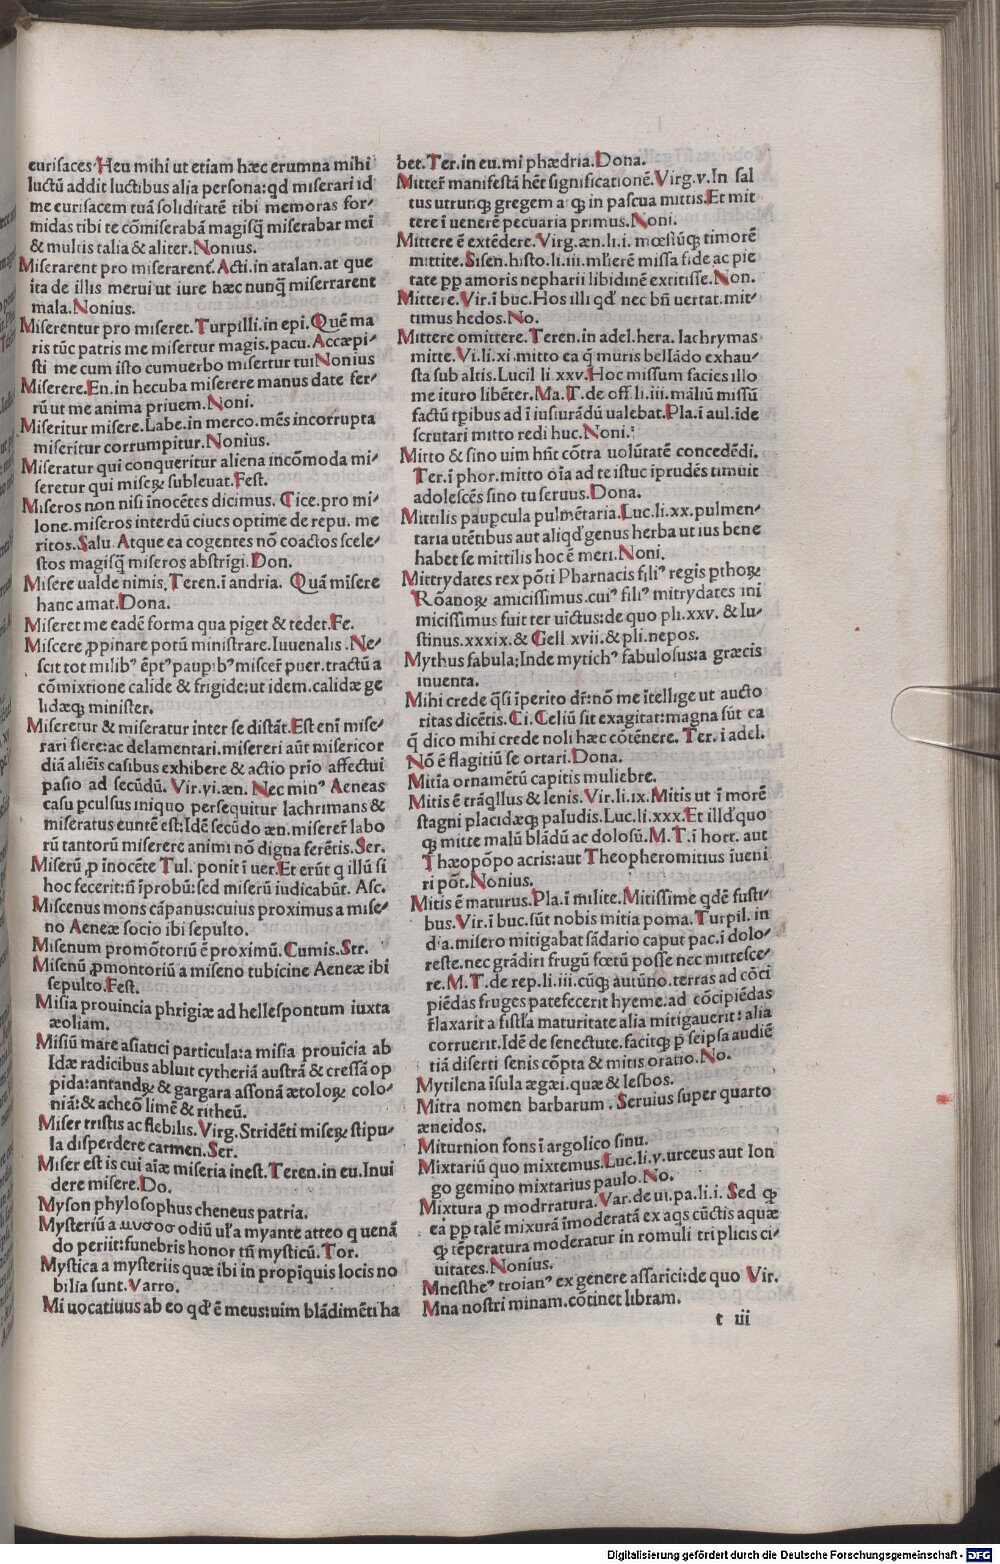 eurisaces. Heu mihi ut etiam hæc erumna mihi
luctū addit luctibus alia persona: qd miserari id
me eurisacem tuā soliditatē tibi memoras for-
midas tibi te cōmiserabā magisq̃ miserabar mei
& multis talia & aliter. Nonius.
Miserarent pro miserarenť. Acti. in atalan. at que
ita de illis merui ut iure hæc nunq̃ miserrarent
mala. Nonius.
Miserentur pro miseret. Turpilli. in epi. Quē ma
ris tūc patris me misertur magis. pacu. Accæpi-
sti me cum isto cumuerbo misertur tui Nonius
Miserere. En. in hecuba miserere manus date fer-
rū ut me anima priuem. Noni.
Miseritur misere. Labe. in merco. mēs incorrupta
miseritur corrumpitur. Nonius.
Miseratur qui conqueritur aliena incōmoda mi-
seretur qui miseꝝ subleuat. Fest.
Miseros non nisi īnocētes dicimus. Cice. pro mi-
lone. miseros interdū ciues optime de repu. me
ritos. Salu. Atque ea cogentes nō coactos scele-
stos magisq̃ miseros abstrīgi. Don.
Misere ualde nimis. Teren. ī andria. Quā misere
hanc amat. Dona.
Miseret me eadē forma qua piget & tedet. Fe.
Miscere ꝓpinare potū ministrare. Iuuenalis. Ne-
scit tot milibꝰ ēptꝰ paupibꝰ misceř puer. tractū a
cōmixtione calide & frigide: ut idem. calidæ ge
lidæqꝫ minister.
Miseretur & miseratur inter se distāt. Est enī mise-
rari flere: ac delamentari. misereri aūt misericor
diā aliēis casibus exhibere & actio prīo affectui
pasio ad secūdū. Vir. vi. æn. Nec minꝰ Aeneas
casu pculsus iniquo persequitur lachrimans &
miseratus euntē est: Idē secūdo æn. misereř labo
rū tantorū miserere animi nō digna ferētis. Ser.
Miserū ꝓ īnocēte Tul. ponit ī uer. Et erūt q illū si
hoc fecerit: ñ īprobū: sed miserū iudicabūt. Asc.
Miscenus mons cāpanus: cuius proximus a mise-
no Aeneæ socio ibi sepulto.
Misenum promōtoriū ē proximū. Cumis. Str.
Misenū ꝓmontoriū a miseno tubicine Aeneæ ibi
sepulto. Fest.
Misia prouincia phrigiæ ad hellespontum iuxta
æoliam.
Misiū mare asiatici particula: a misia prouīcia ab
Idæ radicibus abluit cytheriā austrā & cressā op
pida: antandꝝ & gargara assonā ætoloꝝ colo-
niā: & acheō limē & ritheū.
Miser tristis ac flebilis. Virg. Stridēti miseꝝ stipu-
la disperdere carmen. Ser.
Miser est is cui aīæ miseria inest. Teren. in eu. Inui
dere misere. Do.
Myson phylosophus cheneus patria.
Mysteriū a μυσοσ odiū uľa myante atteo q uenā
do periit: funebris honor tñ mysticū. Tor.
Mystica a mysteriis quæ ibi in propīquis locis no
bilia sunt. Varro.
Mi uocatiuus ab eo qď ē meus: uim blādimēti ha
bet. Ter. in eu. mi phædria. Dona.
Mitteř manifestā hēt significationē. Virg. v. In sal
tus utrunqꝫ gregem aqꝫ in pascua mittis. Et mit
tere ī uenerē pecuaria primus. Noni.
Mittere ē extēdere. Virg. æn. li. i. mœstūqꝫ timorē
mittite. Sisen. histo. li. iii. mľierē missa fide ac pie
tate pp amoris nepharii libidinē extitisse. Non.
Mittere. Vir. ī buc. Hos illi qď nec bñ uertat. mit-
timus hedos. No.
Mittere omittere. Teren. in adel. hera. lachrymas
mitte. Vi. li. xi. mitto ea q̃ muris bellādo exhau-
sta sub altis. Lucil li. xxv. Hoc missum facies illo
me ituro libēter. Ma. T. de off. li. iii. māliū missū
factū tpibus ad ī iusiurādū ualebat. Pla. ī aul. ide
scrutari mitto redi huc. Noni.
Mitto & sino uim hñt cōtra uolūtatē concedēdi.
Ter. ī phor. mitto oīa ad te istuc īprudēs timuit
adolescēs sino tu seruus. Dona.
Mittilis paupcula pulmētaria. Luc. li. xx. pulmen-
taria utētibus aut aliqď genus herba ut ius bene
habet se mittilis hoc ē meri. Noni.
Mittrydates rex pōti Pharnacis filiꝰ regis pthoꝝ
Rōanoꝝ amicissimus. cuiꝰ filiꝰ mitrydates ini
micissimus fuit ter uictus: de quo pli. xxv. & Iu-
stinus. xxxix. & Gell xvii. & pli. nepos.
Mythus fabula: Inde mytichꝰ fabulosus: a græcis
inuenta.
Mihi crede q̃si īperito dř: nō me ītellige ut aucto
ritas dicētis. Ci. Celiū sit exagitat: magna sūt ca
q̃ dico mihi crede noli hæc cōtēnere. Ter. i adel.
Nō ē flagitiū se ortari. Dona.
Mitīa ornamētū capitis muliebre.
Mitis ē trāq̃llus & lenis. Vir. li. ix. Mitis ut ī morē
stagni placidæqꝫ paludis. Luc. li. xxx. Et illď quo
qꝫ mitte malū blādū ac dolosū. M. T. ī hort. aut
Thæopōpo acris: aut Theopheromitius īueni
ri pōt. Nonius.
Mitis ē maturus. Pla. ī milite. Mitissime qdē fusti-
bus. Vir. ī buc. sūt nobis mitia poma. Turpil. in
dia. misero mitigabat sādario caput pac. ī dolo-
reste. nec grādiri frugū fœtū posse nec mittesce-
re. M. T. de rep. li. iii. cūqꝫ autūno. terras ad cōci
piēdas fruges patefecerit hyeme. ad cōcipiēdas
řlaxarit a fistľa maturitate alia mitigauerit: alia
corruerit. Idē de senectute. facitqꝫ p seipsa audiē
tiā diserti senis cōpta & mitis oratio. No.
Mytilena īsula ægæi. quæ & lesbos.
Mitra nomen barbarum. Seruius super quarto
æneidos.
Miturnion fons ī argolico sinu.
Mixtariū quo mixtemus. Luc. li. v. urceus aut lon
go gemino mixtarius paulo. No.
Mixtura ꝓ modrratura. Var. de ui. pa. li. i. Sed qꝫ
ea pp talē mixurā īmoderatā ex aqs cūctis aquæ
qꝫ tēperatura moderatur in romuli triplicis ci-
uitates. Nonius.
Mnestheꝰ troianꝰ ex genere assarici: de quo Vir.
Mna nostri minam. cōtinet libram.
t iii
Digitalisierung gefördert durch die Deutsche Forschungsgemeinschaft - DFG